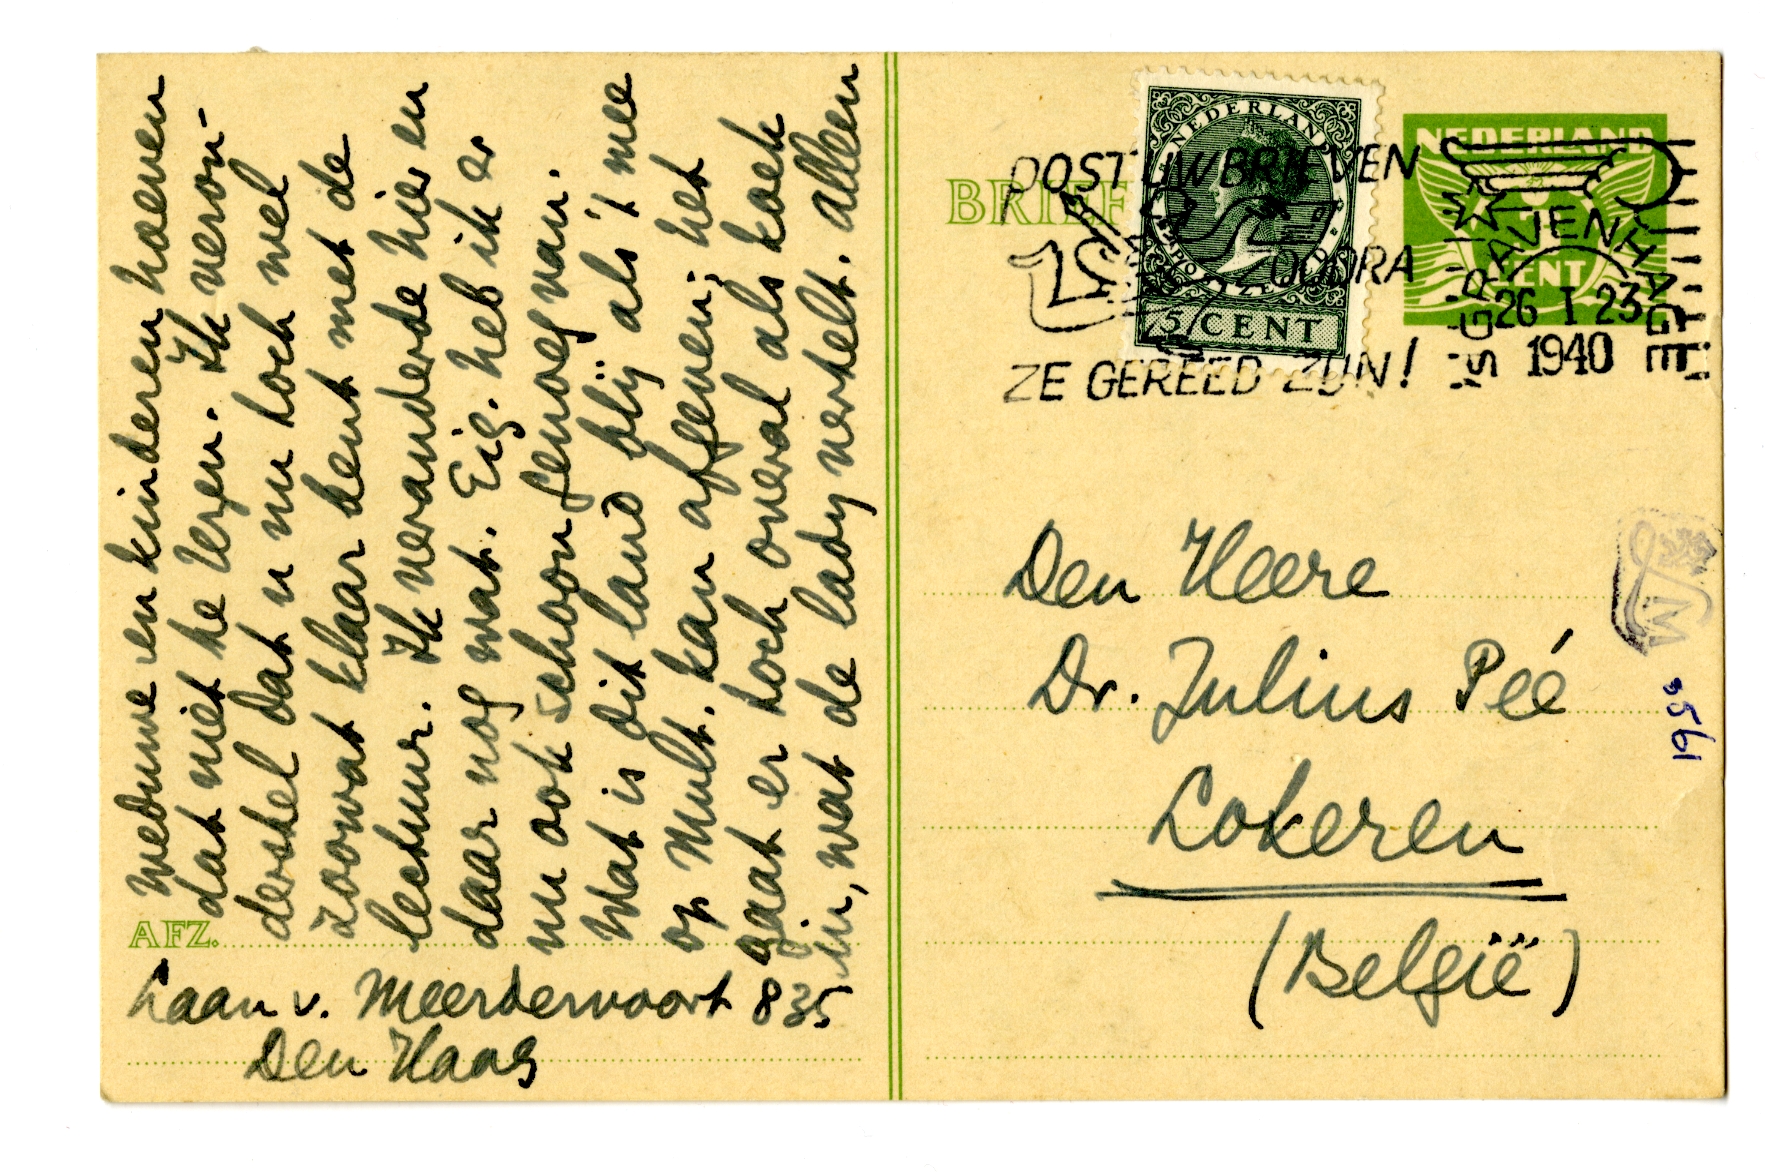 weduwe en kinderen hoeven
dat niet te lezen. Ik veron-
derstel dat u nu toch wel
zoowat klaar bent met de
lectuur. Ik veranderde hier en
daar nog wat. Eig. heb ik er
nu ook schoon genoeg van.
Wat is dit land blij als 't mee
op Mult. kan afgeven; het
gaat er toch overal als koek
in, wat de lady vertelt. Alleen
AFZ.
Laan v. Meerdervoort 835
Den Haag
BRIEF
NEDERLAND
5 CENT
NEDERLAND
CENT
POST UW BRIEVEN
ZOODRA
ZE GEREED ZIJN!
'S-GRAVENHAGE
26 I 23
1940
Den Heere
Dr. Julius Péé
Lokeren
(België)
M